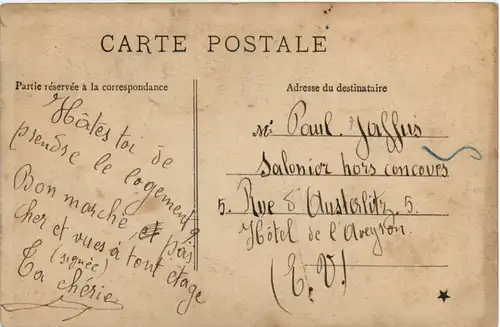 CARTE POSTALE
Partie réservée à la correspondance
Hâtes toi de
prendre le logement?
Bon marché et pas
cher et vues à tout étage
(signée)
Ta chérie
Adresse du destinataire
Mr Paul
Salonier hors concours
5. Rue d'Austerlitz 5.
Hôtel de l'Aveyron.
(E. V.)